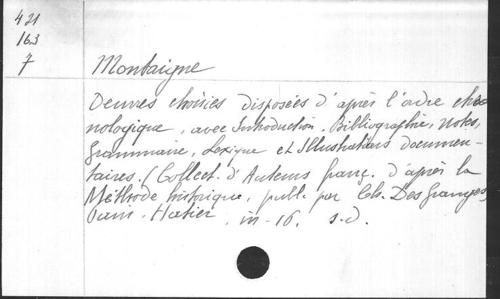 421
163
7
Montaigne
Oeuvres choisies disposées d'après l'odre chro-
nologique, avec Introduction, Bibliographie, Notes,
Grammaire, Lexique et Illustrations documen-
taires. (Collect. d'Auteurs franç. d'après la
Méthode historique, publ. par Ch. Des Granges,
Paris - Hatier, in-16. s.d.